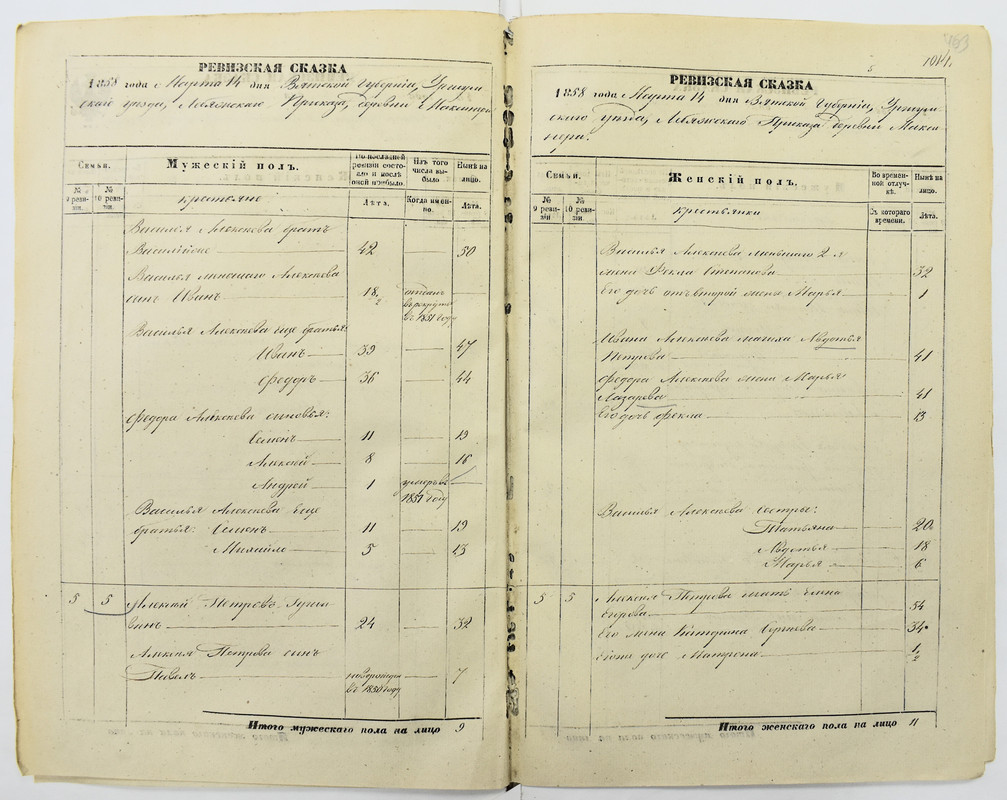 РЕВИЗСКАЯ СКАЗКА
1858 года Марта 14 дня Вятской Губерніи, Уржум
скаго уѣзда, Лебяжскаго Приказа, деревни
Семьи.
Мужескій полъ.
По последней ревизіи состояло и послѣ оной прибыло.
Изъ того числа выбыло
Нынѣ на лицо.
№ 9 ревизіи.
№ 10 ревизіи.
крестьяне
Лѣта.
Когда именно.
Лѣта.
Василья Алексѣева братъ
42 50
Василья меньшаго Алексѣева
сынъ Иванъ 18 1/2 отданъ въ рекруты въ 1851 году
Василья Алексѣева еще братья:
Иванъ 39 47
Федоръ 36 44
Федора Алексѣева сыновья:
Семенъ 11 19
Алексѣй 8 16
Андрей 1 умеръ въ 1851 году
Василья Алексѣева еще
братья: Семенъ 11 19
Михайло 5 13
5 5 Алексѣй Петровъ
24 32
Алексѣя Петрова сынъ
Павелъ новорожден въ 1850 году 7
Итого мужескаго пола на лицо 9
453
1014.
5
РЕВИЗСКАЯ СКАЗКА
1858 года Марта 14 дня Вятской Губерніи, Уржум
скаго уѣзда, Лебяжскаго Приказа деревни
Семьи.
Женскій полъ.
Во временной отлучкѣ.
Нынѣ на лицо.
№ 9 ревизіи
№ 10 ревизіи.
крестьянки
Съ котораго времени.
Лѣта.
Василья Алексѣева меньшаго 2 я
жена Фекла Степанова 32
Его дочь отъ второй жены Марья 1
Ивана Алексѣева мачиха Авдотья
Петрова 41
Федора Алексѣева жена Марья
Лазарева 41
Его дочь Фекла 13
Василья Алексѣева сестры:
Татьяна 20
Авдотья 18
Марья 6
5 5 Алексѣя Петрова мать Елена
Егорова 54
Его жена Катерина Сергѣева 34
дочь Матрона 1/2
Итого женскаго пола на лицо 11